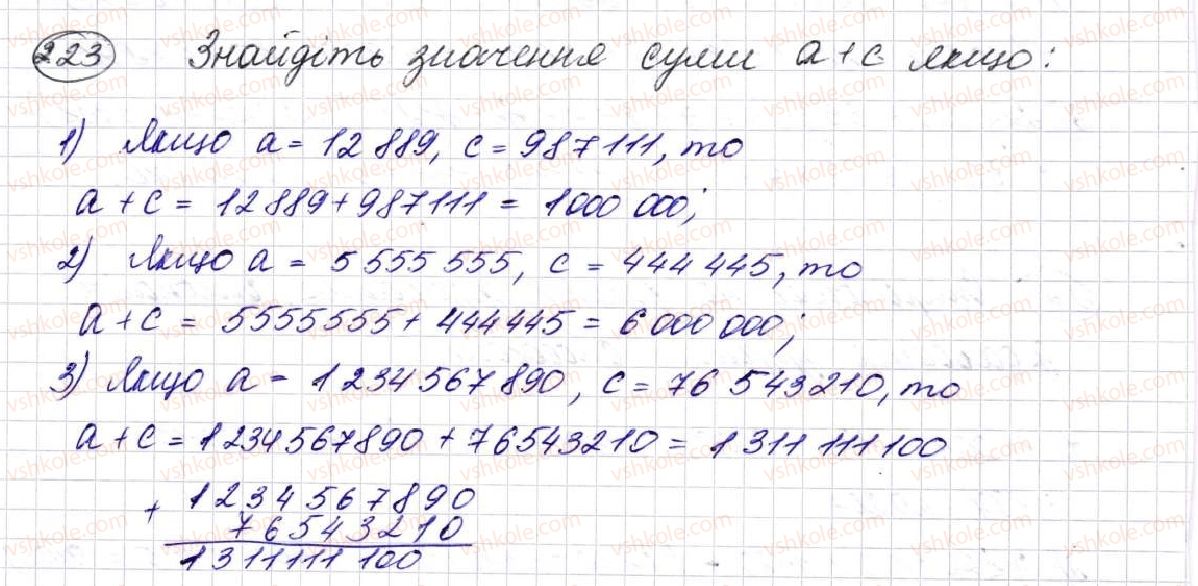 223 Знайдіть значення суми a+c якщо:
1) Якщо a = 12 889, c = 987 111, то
a + c = 12 889 + 987 111 = 1 000 000;
2) Якщо a = 5 555 555, c = 444 445, то
a + c = 5555555 + 444445 = 6 000 000;
3) Якщо a = 1 234 567 890, c = 76 543 210, то
a + c = 1 234 567 890 + 76 543 210 = 1 311 111 100
+ 1 2 3 4 5 6 7 8 9 0
7 6 5 4 3 2 1 0
1 3 1 1 1 1 1 1 0 0